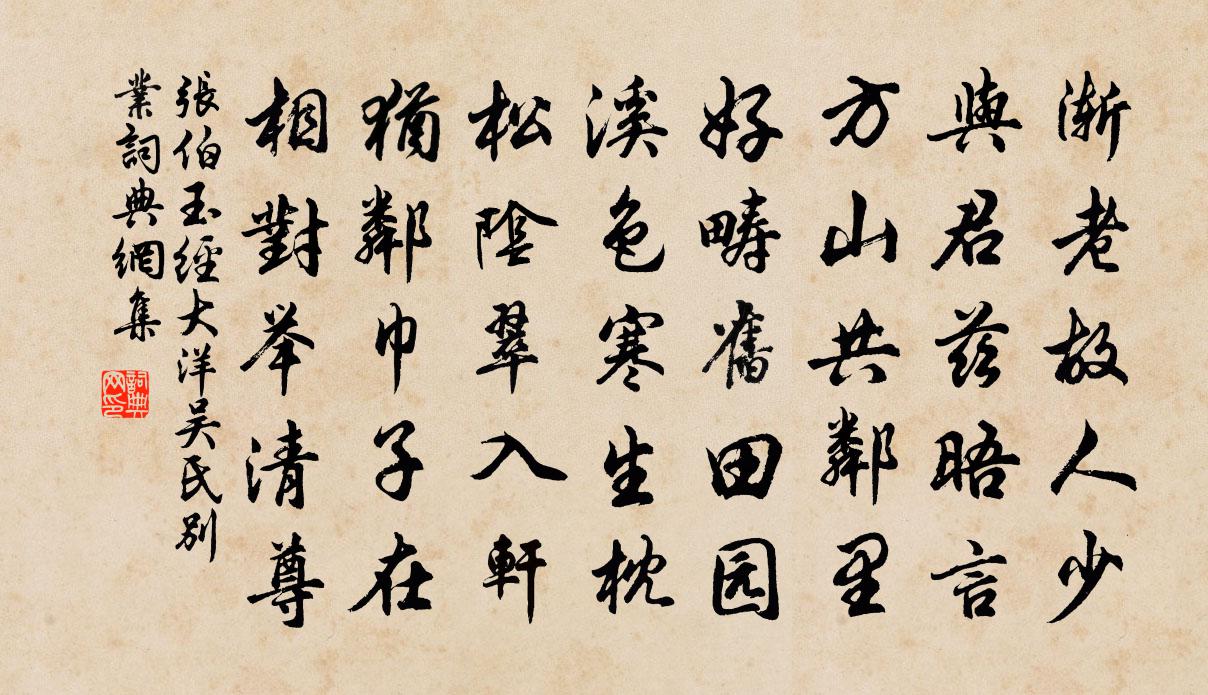 漸老故人少
與君兹晤言
方山共鄰里
好畴舊田园
溪色寒生枕
松陰翠入軒
猶鄰巾子在
相對举清尊
張伯玉經大洋吴氏别
業詞典網集
詞典
网印